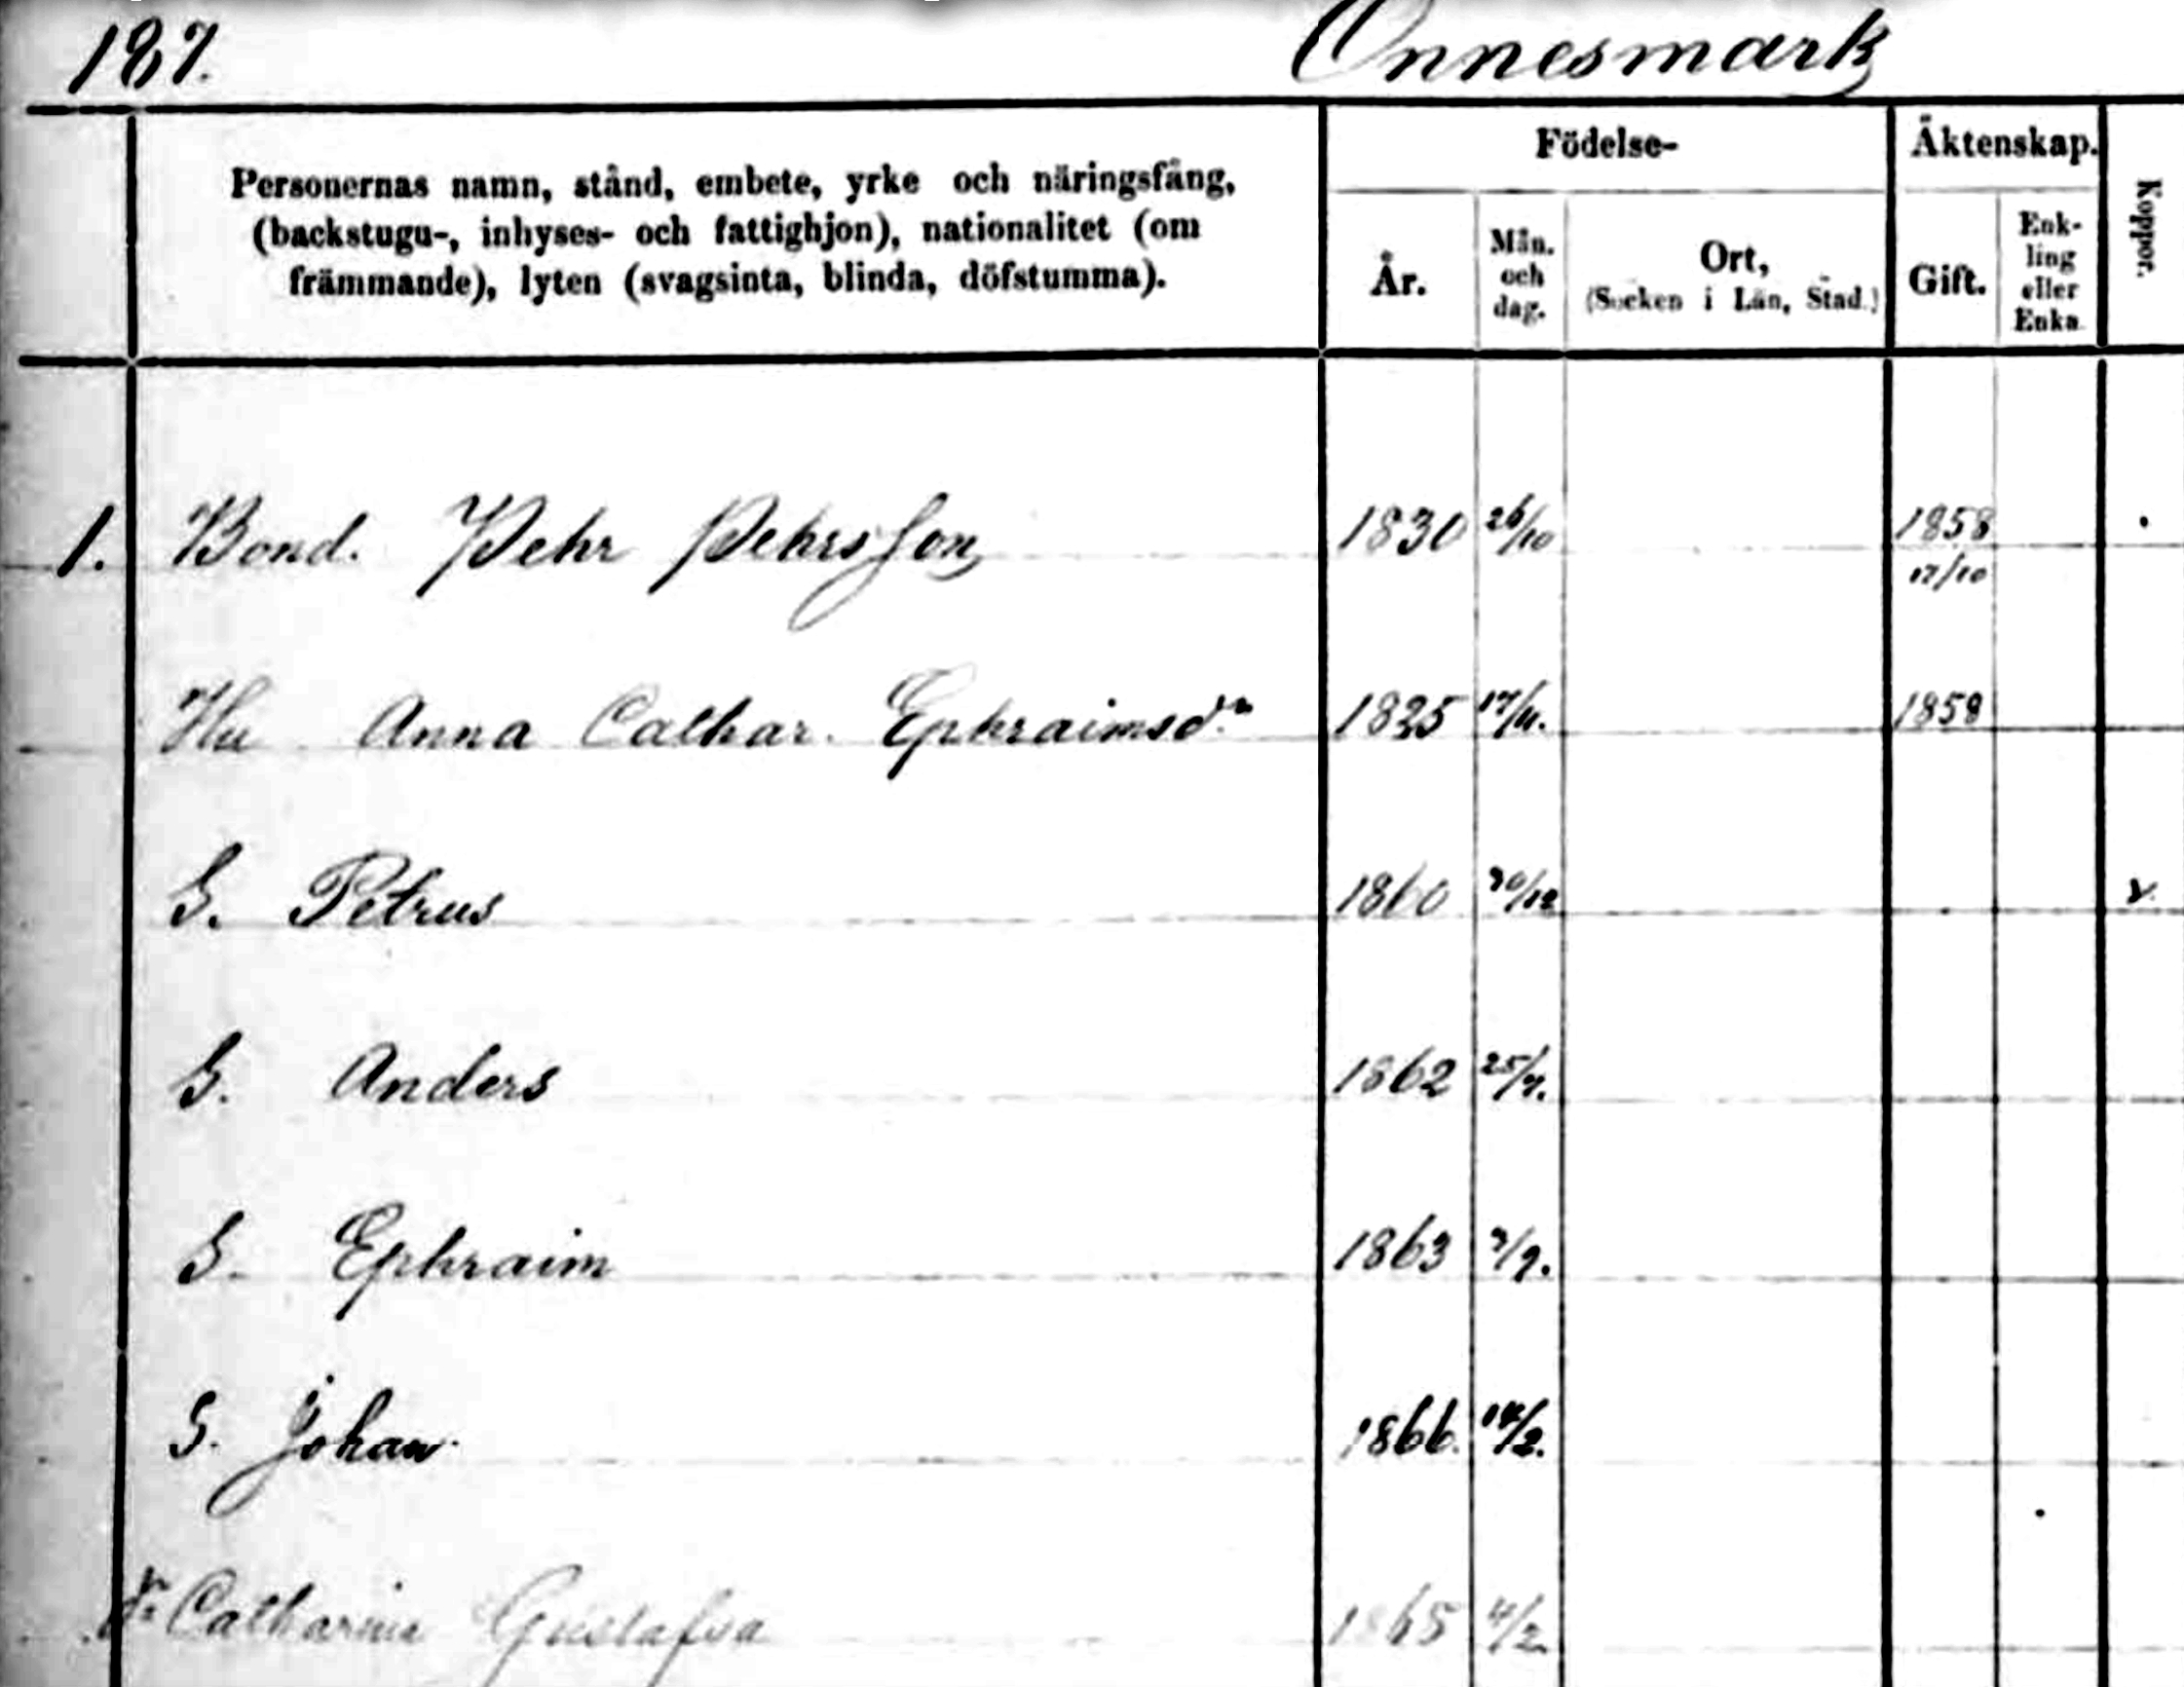 187.
Onnesmark
Personernas namn, stånd, embete, yrke och näringsfång,
(backstugu-, inhyses- och fattighjon), nationalitet (om
främmande), lyten (svagsinta, blinda, döfstumma).
Födelse-
År.
Mån.
och
dag.
Ort,
(Socken i Län, Stad.)
Äktenskap.
Gift.
Enk-
ling
eller
Enka
Koppor.
1. Bond. Pehr Pehrsson 1830 26/10 1858
17/10
Hu Anna Cathar. Ephraimsdr 1825 17/11. 1858
S. Petrus 1860 30/12 v.
S. Anders 1862 25/7.
S. Ephraim 1863 3/9.
S. Johan 1866. 14/2.
dr Catharina Gustafva 1865 4/2